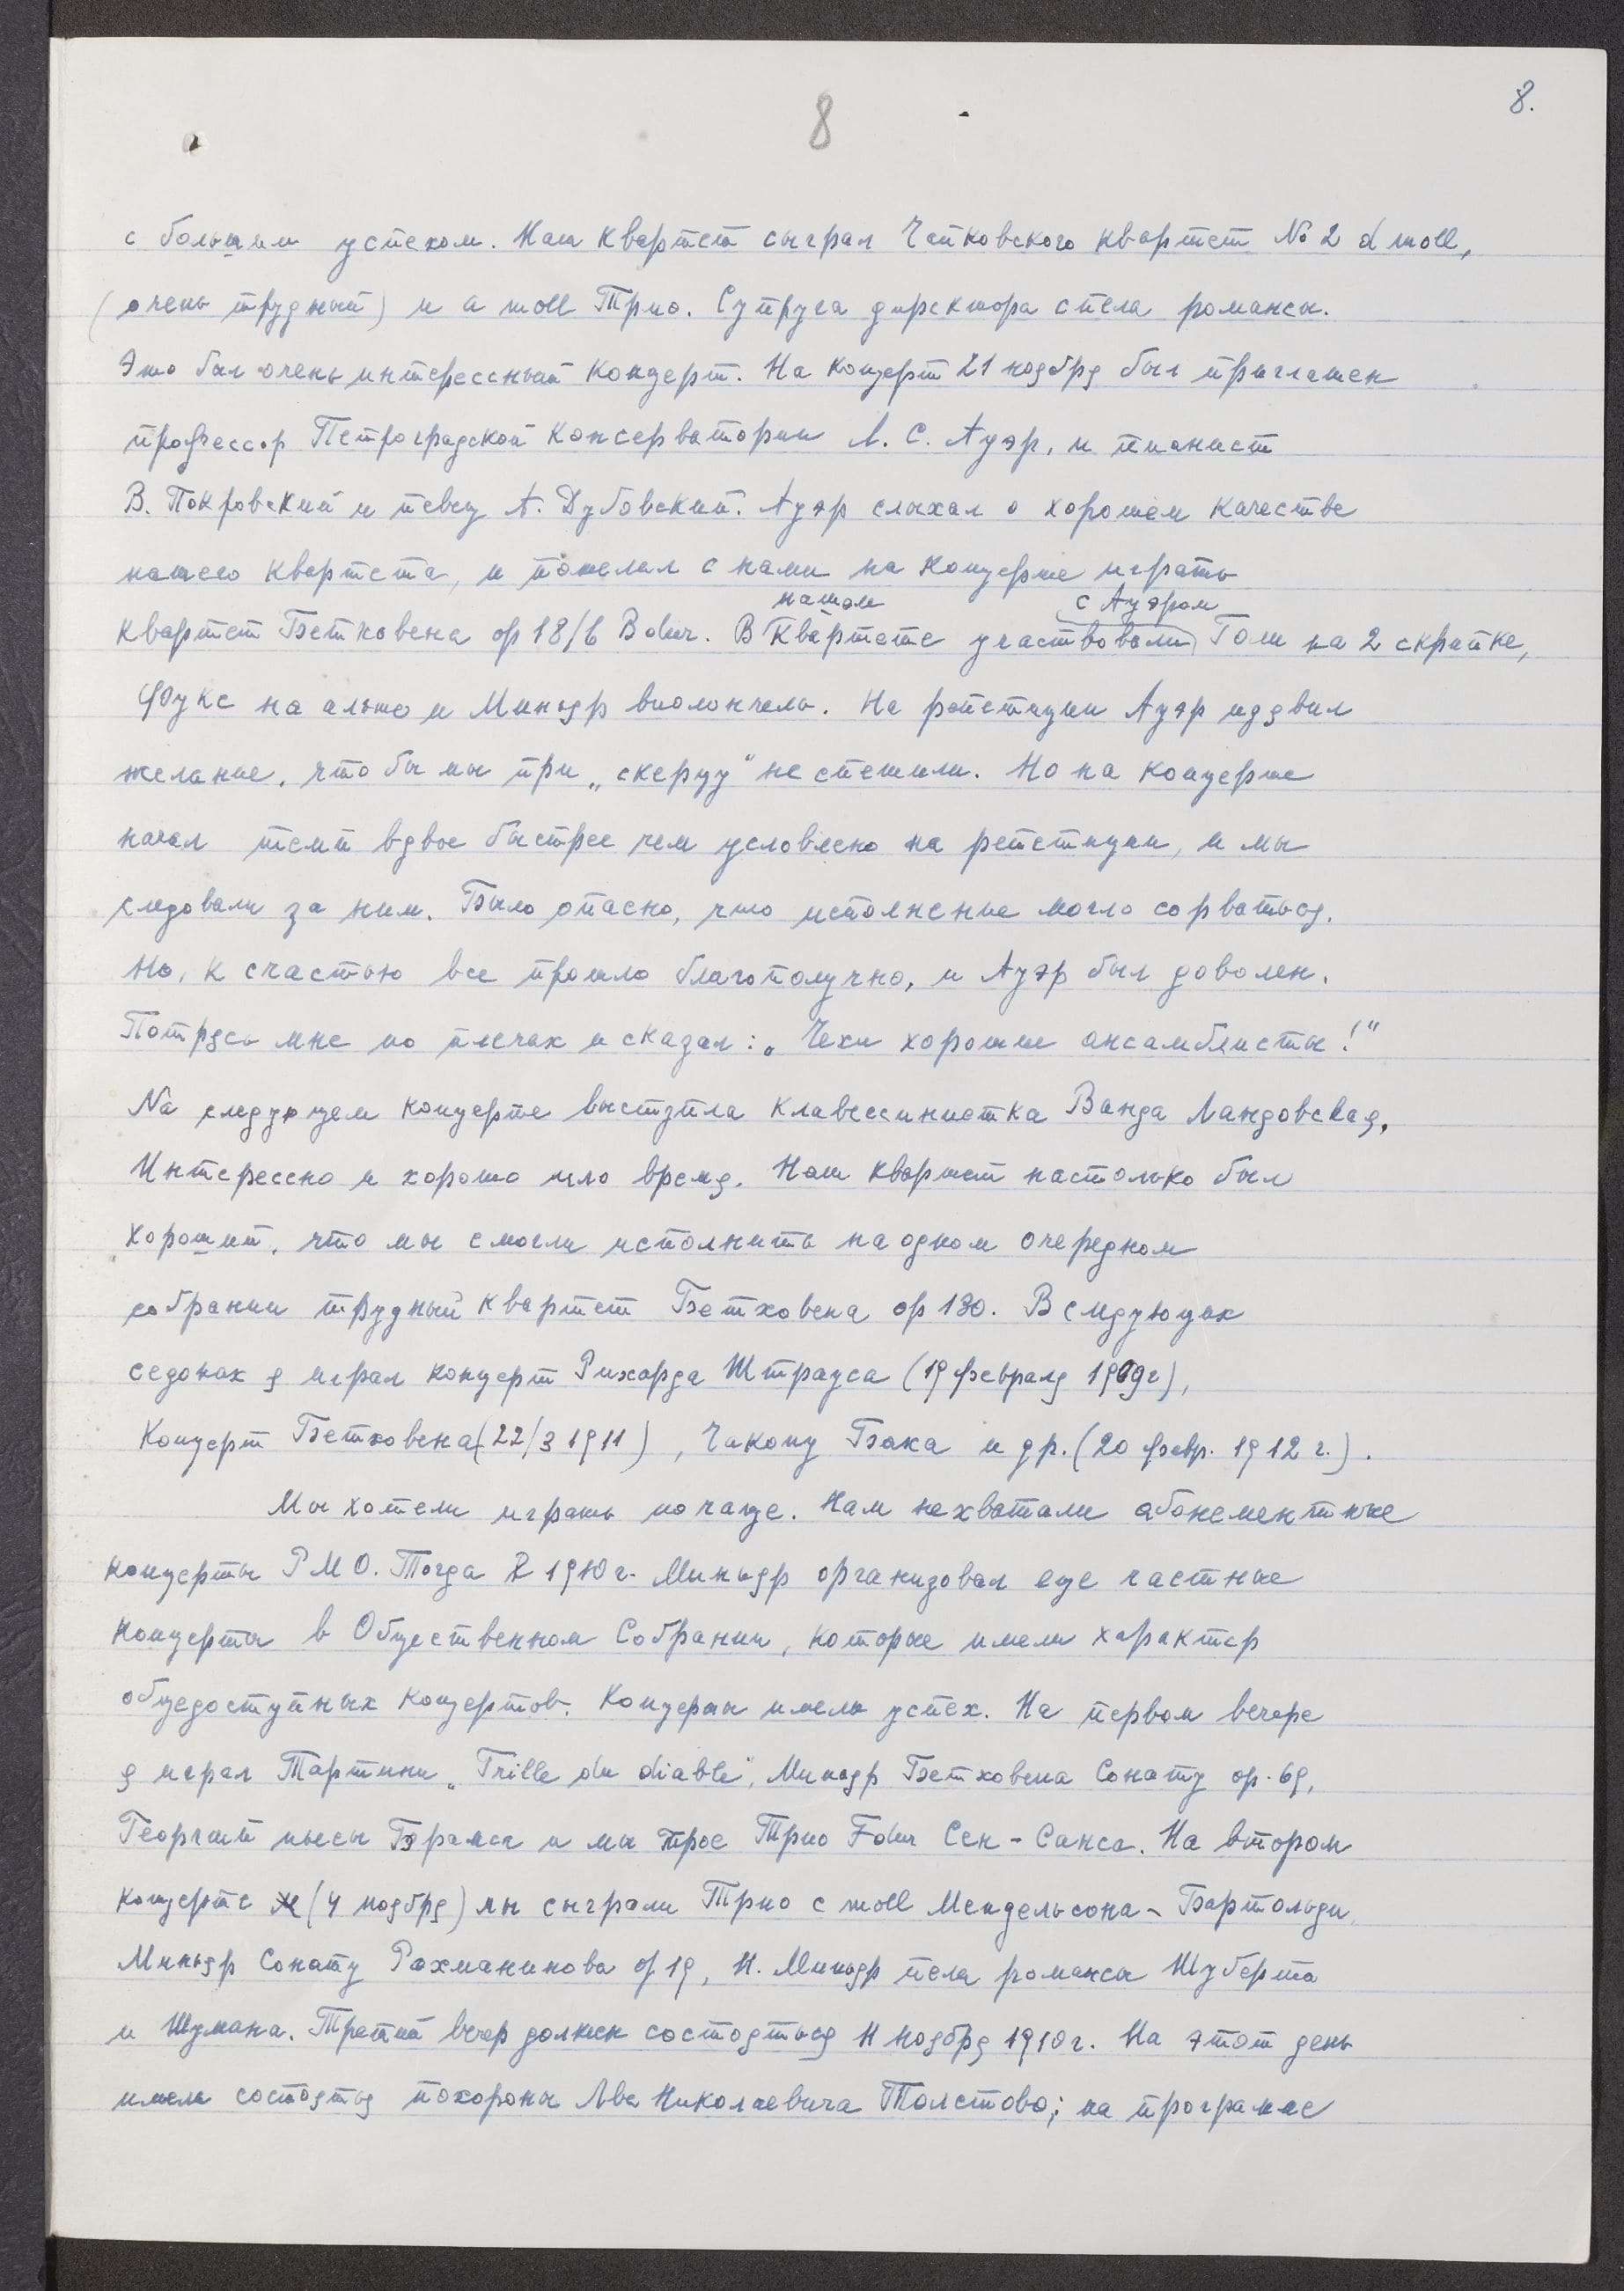 8
8.
с большим успехом. Наш Квартет сыграл Чайковского квартет № 2 d moll,
(очень трудный) и a moll Трио. Супруга директора спела романсы.
Это был очень интерессный Концерт. На концерт 21 ноября был приглашен
профессор Петроградской Консерватории Л. С. Ауэр, и пианист
В. Покровский и певец А. Дубовский. Ауэр слыхал о хорошем качестве
нашего квартета, и пожелал с нами на концерте играть
нашем с Ауэром
квартет Бетховена op 18/6 B dur. В Квартете участвовали Гош на 2 скрипке,
Фукс на альте и Миньяр виолончель. На репетиции Ауэр изявил
желание, что бы мы при „скерцу“ не спешили. Но на концерте
начал темп вдвое быстрее чем условлено на репетиции, и мы
следовали за ним. Было опасно, что исполнение могло сорваться.
Но, к счастью все прошло благополучно, и Ауэр был доволен.
Потряс мне по плечах и сказал: „Чехи хорошие ансамблисты!“
На следующем концерте выступила клавессинистка Ванда Ландовская.
Интерессно и хорошо шло время. Наш квартет настолько был
хороший, что мы смогли исполнить на одном очередном
собрании трудный квартет Бетховена op 130. В следующих
сезонах я играл концерт Рихарда Штрауса (19 февраля 1909г),
Концерт Бетховена (22/3 1911), Чакону Баха и др. (20 февр. 1912 г.).
Мы хотели играть почаще. Нам нехватали абонементные
концерты РМО. Тогда в 1910 г. Миньяр организовал еще частные
концерты в Общественном Собрании, которые имели характер
общедоступных концертов. Концерты имели успех. На первом вечере
я играл Тартини „Trille du diable“, Миньяр Бетховена Сонату op. 69,
Георгий пьесы Брамса и мы трое Трио F dur Сен-Санса. На втором
концерте (4 ноября) мы сыграли Трио c moll Мендельсона-Бартольди,
Миньяр Сонату Рахманинова op 19, Н. Миньяр пела романсы Шуберта
и Шумана. Третий вечер должен состояться 11 ноября 1910 г. На этот день
имели состояться похороны Льва Николаевича Толстово; на программе